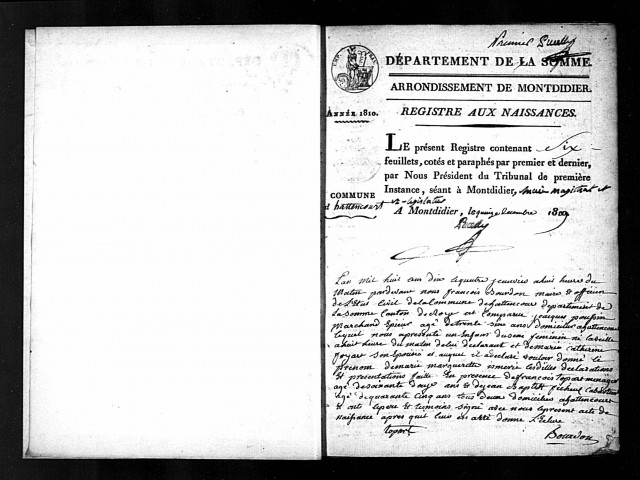 Premier
DÉPARTEMENT DE LA SOMME.
ARRONDISSEMENT DE MONTDIDIER.
ANNÉE 1810.
REGISTRE AUX NAISSANCES.
LE présent Registre contenant Six
feuillets, cotés et paraphés par premier et dernier,
par Nous Président du Tribunal de première
Instance, séant à Montdidier, magistrat et
législateur
COMMUNE
d'hattencourt
A Montdidier, le quinze décembre 1809
L'an mil huit cent dix le quatre janvier a huit heure du
Matin pardevant nous francois Bourdon maire et officier
de L'état Civil de la Commune de hattencourt Departement de
La Somme Canton de Roye est Comparu jacques poussin
Marchand Epicier agé de trente six ans domicilié a hattencourt
lequel nous a presenté un Enfant du sexe feminin né la veille
a huit heure du matin de lui declarant et de marie catherine
son Epouse et auquel il a declaré vouloir donné le
prenom de marie marguerite les dittes declarations
Et presentations faite En presence de francois topart menager
agé de soixante et ans et de jean Baptiste
agé de quarante cinq ans tous deux domiciliés a hattencourt
Et ont le pere et temoins signé avec nous le present acte de
naissance apres que leur en a été donné Lecture
topart
Bourdon